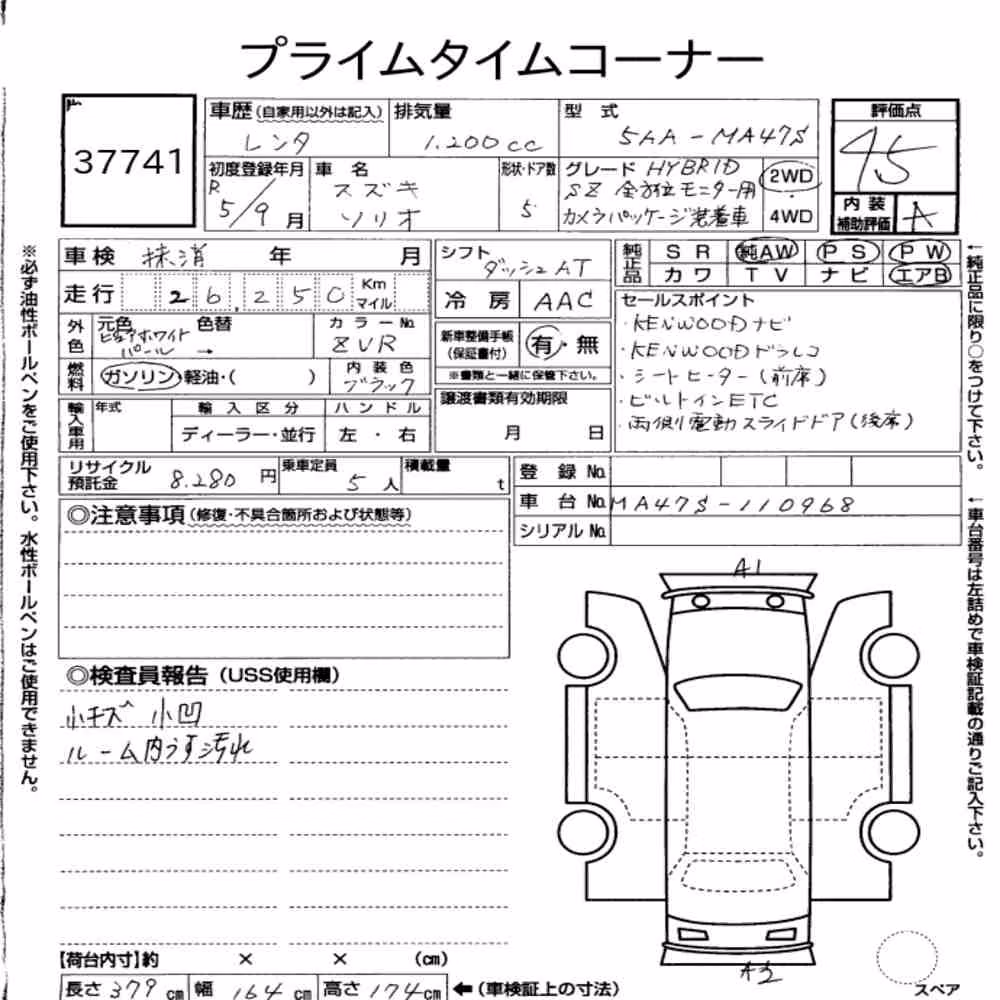 プライムタイムコーナー
37741
車歴(自家用以外は記入) レンタ
排気量 1.200cc
型式 5AA-MA47S
評価点 4.5
初度登録年月 R5/9月
車名 スズキ ソリオ
形状・ドア数 5
グレード HYBRID
SZ 全方位モニター用
カメラパッケージ装着車
2WD
4WD
内装補助評価 A
車検 抹消 年 月
シフト ダッシュAT
純正品 SR 純AW PS PW
カワ TV ナビ エアB
走行 26,250 Km マイル
冷房 AAC
外色 元色 ピュアホワイトパール 色替 →
カラーNo. ZVR
新車整備手帳(保証書付) 有・無
※書類と一緒に保管下さい。
燃料 ガソリン・軽油・( )
内装色 ブラック
譲渡書類有効期限
月 日
セールスポイント
・KENWOODナビ
・KENWOODドラレコ
・シートヒーター(前席)
・ビルトインETC
・両側電動スライドドア(後席)
輸入車用 年式 輸入区分 ハンドル
ディーラー・並行 左・右
リサイクル預託金 8.280円
乗車定員 5人
積載量 t
登録No.
車台No. MA47S-110968
シリアルNo.
◎注意事項(修復・不具合箇所および状態等)
◎検査員報告(USS使用欄)
小キズ 小凹
ルーム内うす汚れ
A1
A2
スペア
【荷台内寸】約 × × (cm)
長さ379cm 幅164cm 高さ174cm ←(車検証上の寸法)
※必ず油性ボールペンをご使用下さい。水性ボールペンはご使用できません。
←純正品に限り○をつけて下さい。
←車台番号は左詰めで車検証記載の通りご記入下さい。